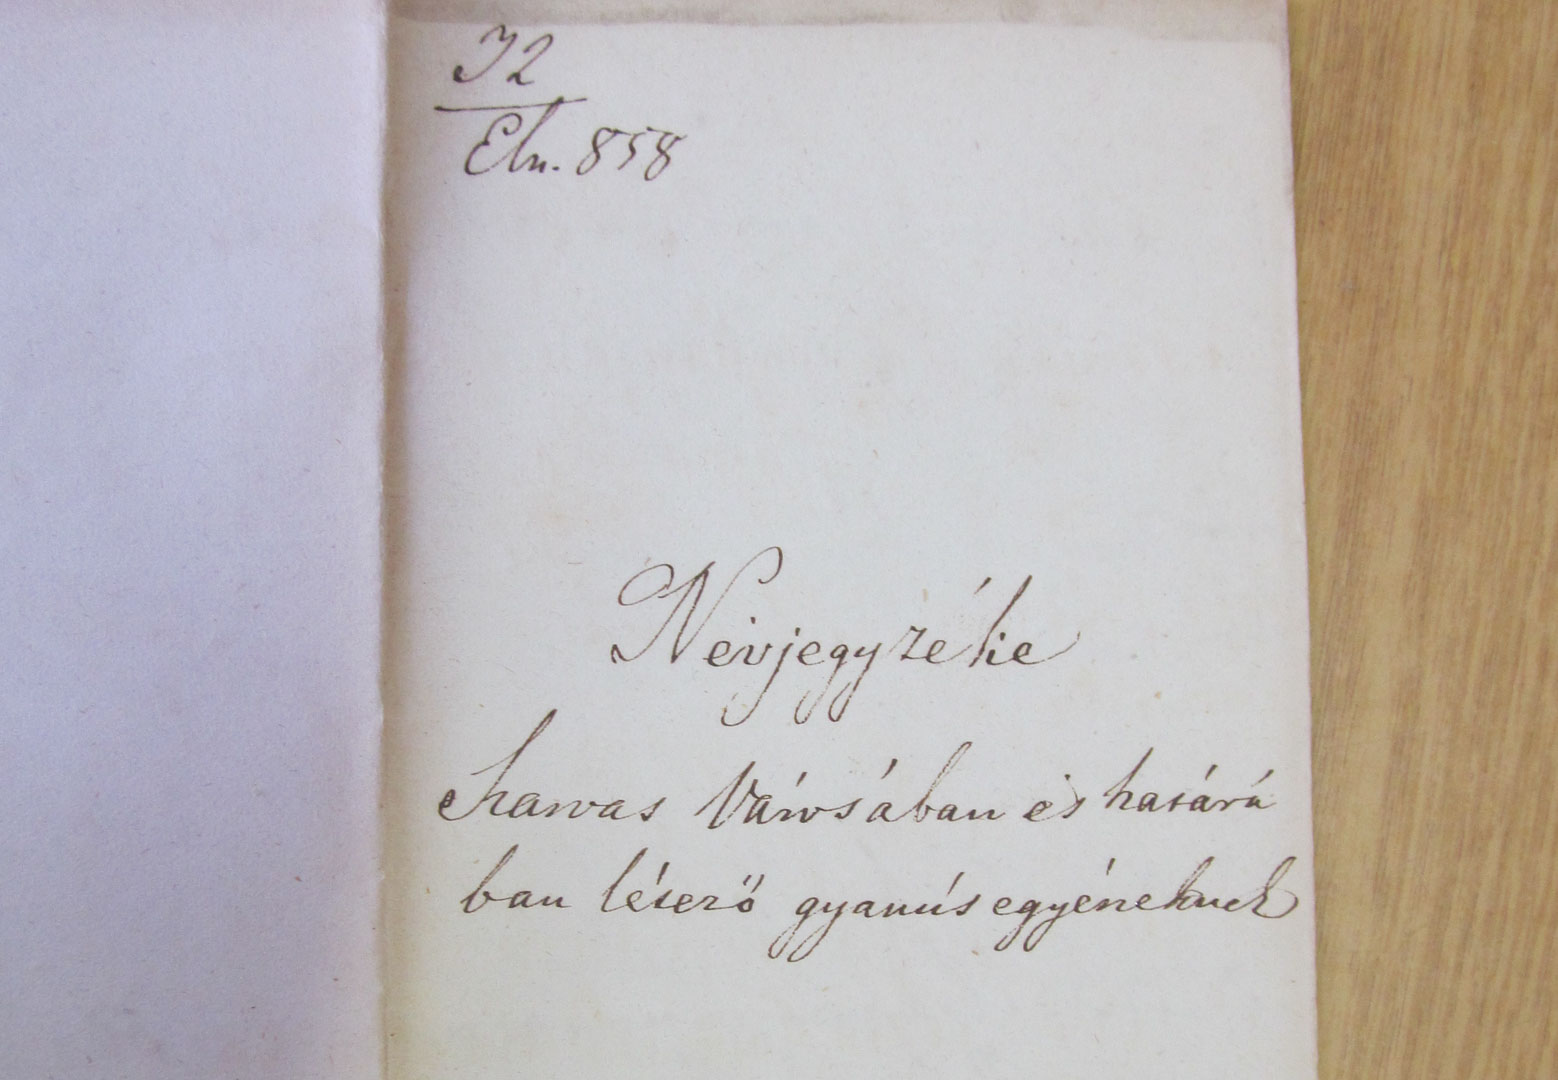 72
Eln. 858
Névjegyzéke
Szarvas Városában és határá
ban létező gyanús egyéneknek